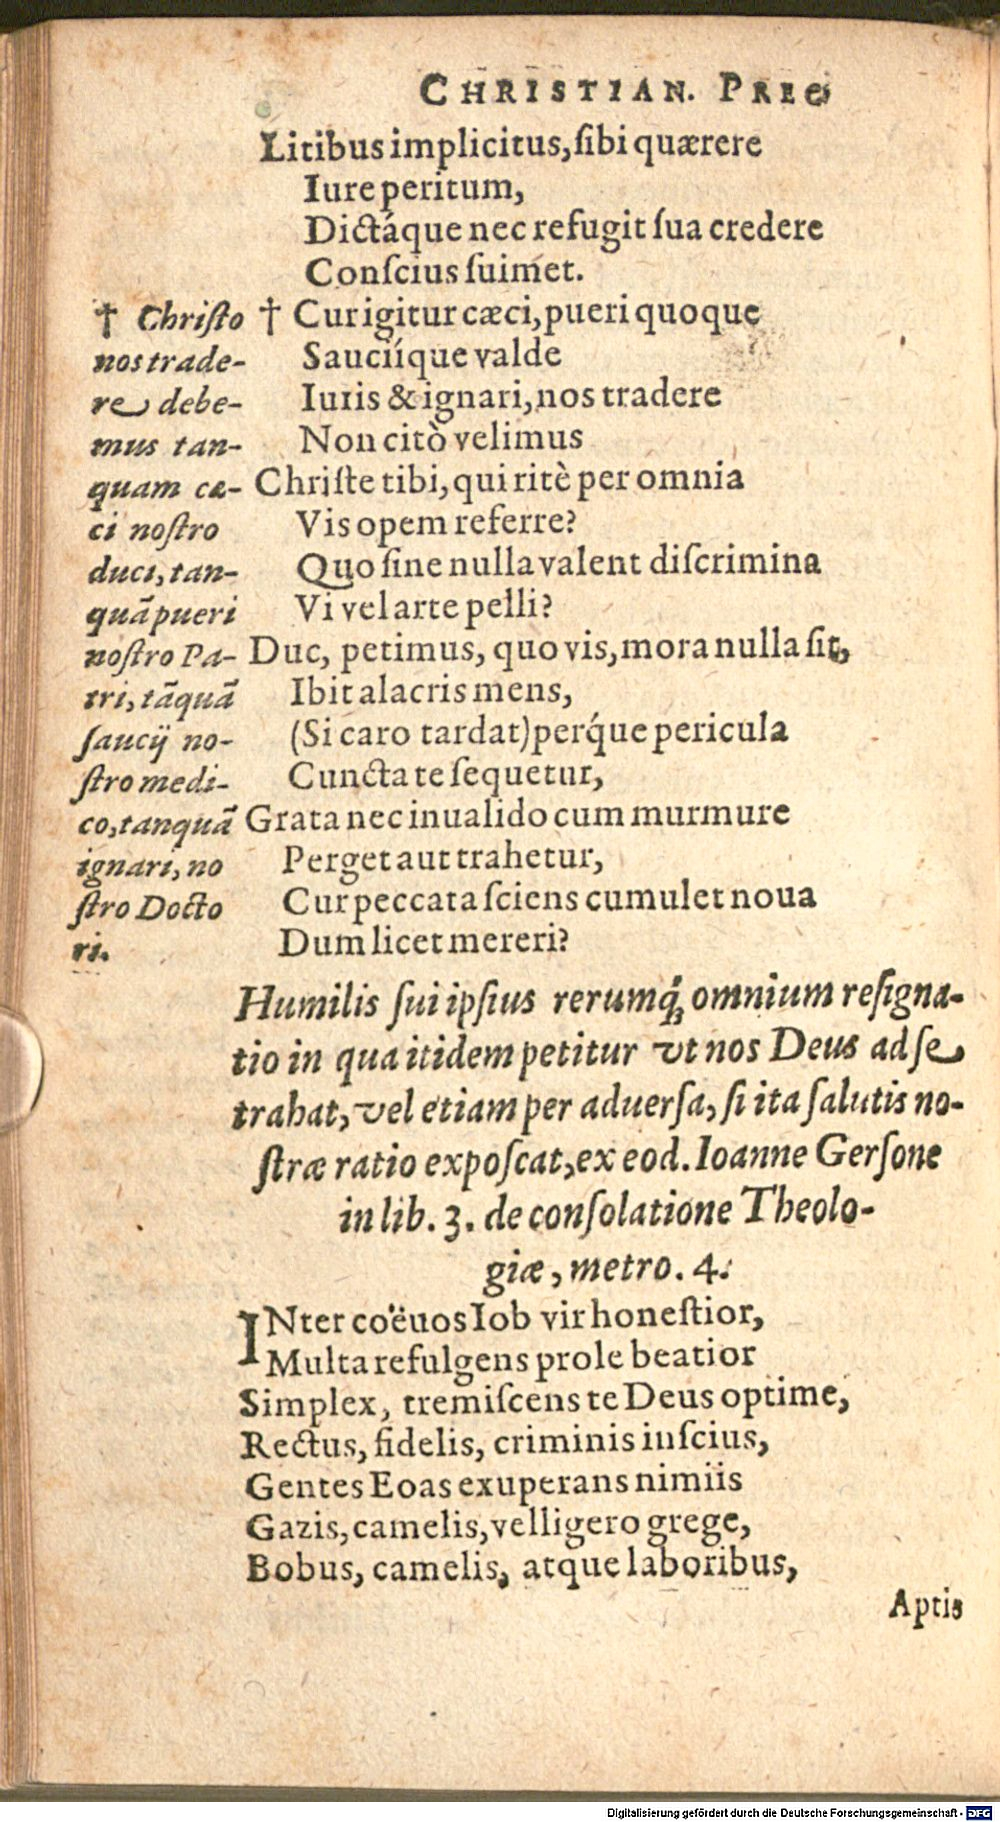 CHRISTIAN. PREC
Litibus implicitus, ſibi quærere
Iure peritum,
Dictáque nec refugit ſua credere
Conſcius ſuimet.
† Cur igitur cæci, pueri quoque
Sauciíque valde
Iuris & ignari, nos tradere
Non citò velimus
Chriſte tibi, qui ritè per omnia
Vis opem referre?
Quo ſine nulla valent diſcrimina
Vi vel arte pelli?
Duc, petimus, quo vis, mora nulla ſit,
Ibit alacris mens,
(Si caro tardat) perq́ue pericula
Cuncta te ſequetur,
Grata nec inualido cum murmure
Perget aut trahetur,
Cur peccata ſciens cumulet noua
Dum licet mereri?
† Chriſto
nos trade-
re debe-
mus tan-
quam cæ-
ci noſtro
duci, tan-
quã pueri
noſtro Pa-
tri, tãquã
ſaucij no-
ſtro medi-
co, tanquã
ignari, no
ſtro Docto
ri.
Humilis ſui ipſius rerumq́; omnium reſigna-
tio in qua itidem petitur vt nos Deus ad ſe
trahat, vel etiam per aduerſa, ſi ita ſalutis no-
ſtræ ratio expoſcat, ex eod. Ioanne Gerſone
in lib. 3. de conſolatione Theolo-
giæ, metro. 4.
INter coëuos Iob vir honeſtior,
Multa refulgens prole beatior
Simplex, tremiſcens te Deus optime,
Rectus, fidelis, criminis inſcius,
Gentes Eoas exuperans nimiis
Gazis, camelis, velligero grege,
Bobus, camelis, atque laboribus,
Aptis
Digitalisierung gefördert durch die Deutsche Forschungsgemeinschaft - DFG